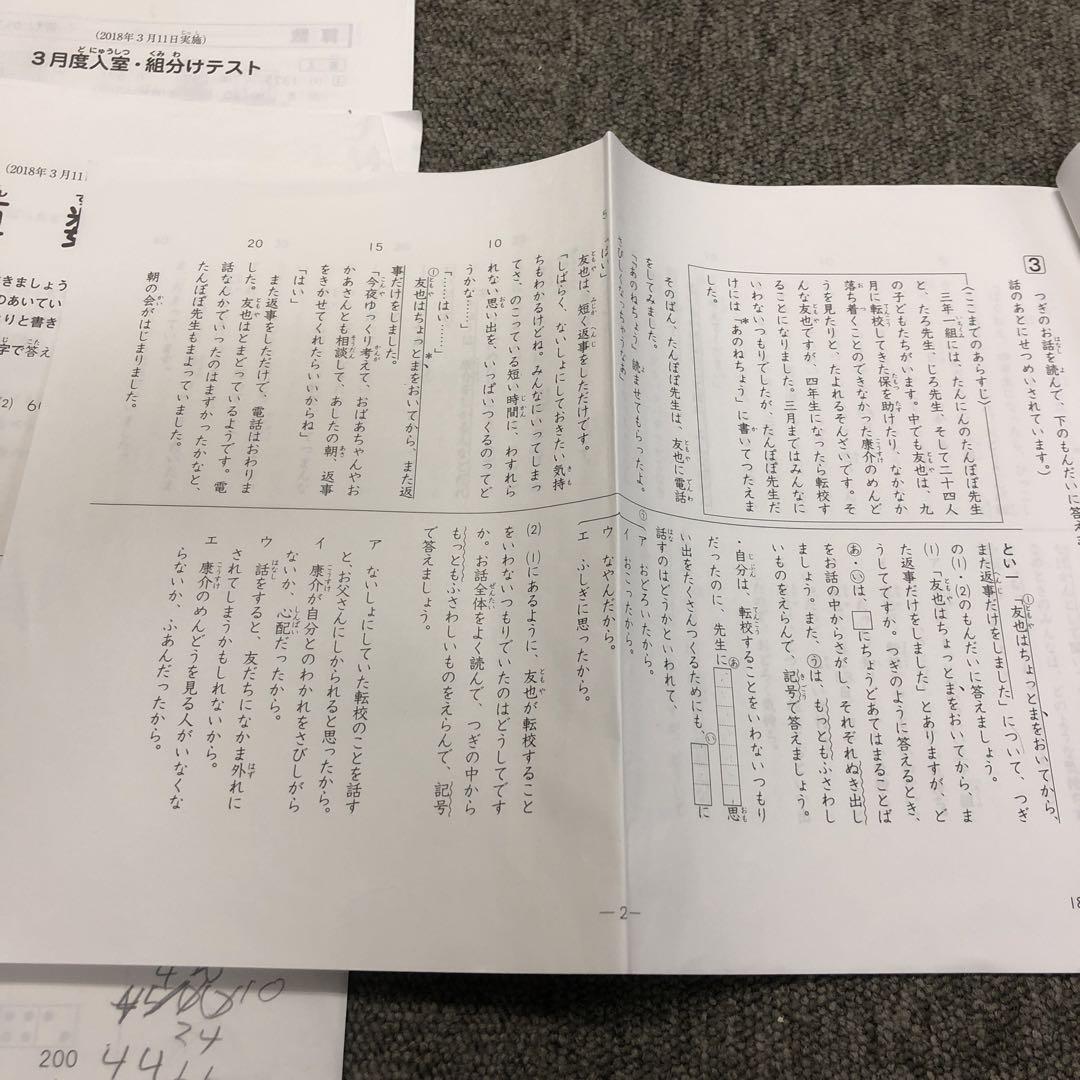 (2018年3月11日実施)
3月度入室・組分けテスト
(2018年3月11
きましょう
のあいてい
りと書き
字で答え
200
3
つぎのお話を読んで、下のもんだいに答え
話のあとにせつめいされています。)
(ここまでのあらすじ)
三年一組には、たんにんのたんぽぽ先生
と、たろ先生、じろ先生、そして二十四人
の子どもたちがいます。中でも友也は、九
月に転校してきた保を助けたり、なかなか
落ち着くことのできなかった康介のめんど
うを見たりと、たよれるそんざいです。そ
んな友也ですが、四年生になったら転校す
ることになりました。三月まではみんなに
いわないつもりでしたが、たんぽぽ先生だ
けには「*あのねちょう」に書いてつたえま
した。
そのばん、たんぽぽ先生は、友也に電話
をしてみました。
「あのねちょう、読ませてもらったよ。
さびしくなっちゃうなあ」
5
「はい」
友也は、短く返事をしただけです。
「しばらく、ないしょにしておきたい気持
ちもわかるけどね。みんなにいってしまっ
てさ、のこっている短い時間に、わすれら
10
れない思い出を、いっぱいつくるのってど
うかな……」
「……はい……」
①友也はちょっとまをおいてから、また返
事だけをしました。
15
「今夜ゆっくり考えて、おばあちゃんやお
かあさんとも相談して、あしたの朝、返事
をきかせてくれたらいいからね」
「はい」
また返事をしただけで、電話はおわりま
20
した。友也はとまどっているようです。電
話なんかでいったのはまずかったかなと、
たんぽぽ先生もまよっていました。
朝の会がはじまりました。
とい一 「①友也はちょっとまをおいてから、
また返事だけをしました」について、つぎ
の(1)・(2)のもんだいに答えましょう。
(1) 「友也はちょっとまをおいてから、ま
た返事だけをしました」とありますが、ど
うしてですか。つぎのように答えるとき、
あ・いは、□にちょうどあてはまることば
をお話の中からさがし、それぞれぬき出し
ましょう。また、うは、もっともふさわし
いものをえらんで、記号で答えましょう。
・自分は、転校することをいわないつもり
だったのに、先生にあ思
い出をたくさんつくるためにも、いに
話すのはどうかといわれて、
う
ア おどろいたから。
イ おこったから。
ウ なやんだから。
エ ふしぎに思ったから。
(2) (1)にあるように、友也が転校すること
をいわないつもりでいたのはどうしてです
か。お話全体をよく読んで、つぎの中から
もっともふさわしいものをえらんで、記号
で答えましょう。
ア ないしょにしていた転校のことを話す
と、お父さんにしかられると思ったから。
イ 康介が自分とのわかれをさびしがら
ないか、心配だったから。
ウ 話をすると、友だちになかま外れに
されてしまうかもしれないから。
エ 康介のめんどうを見る人がいなくな
らないか、ふあんだったから。
—2—